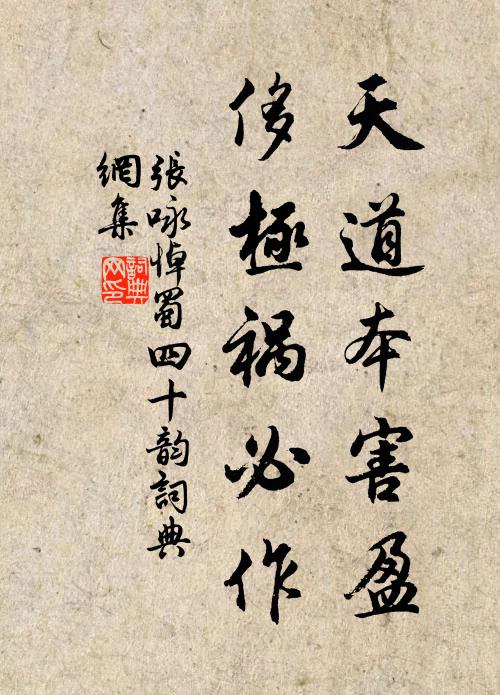 天道本害盈
侈極禍必作
張咏悼蜀四十韵詞典
網集
詞典網印